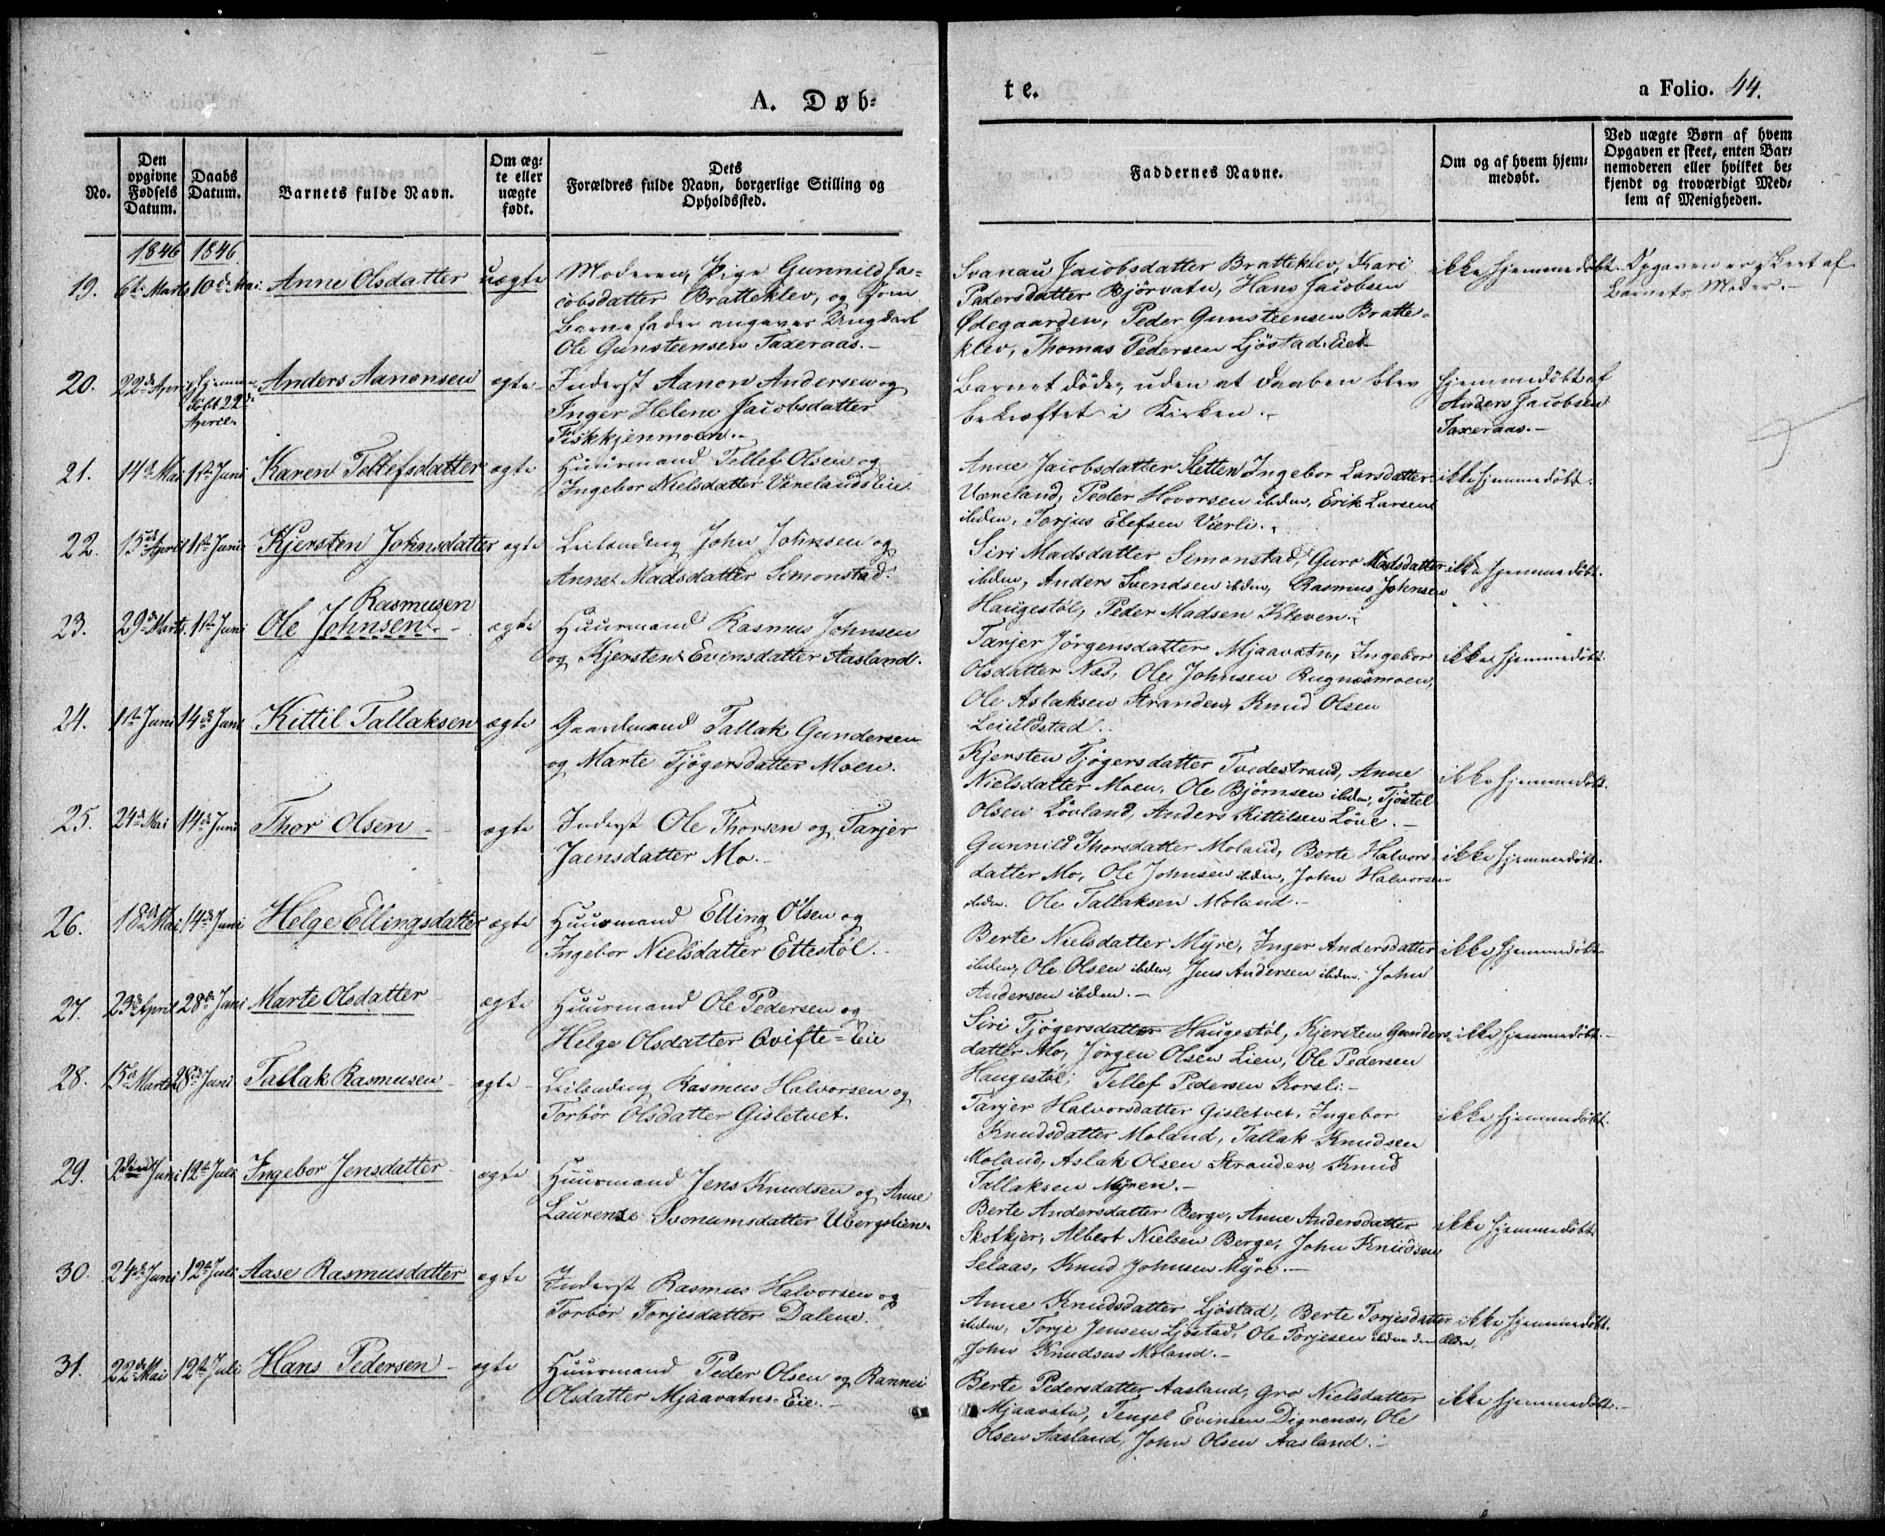 A. Døb-
te.
a Folio. 44.
No.
Den opgivne Fødsels Datum.
Daabs Datum.
Barnets fulde Navn.
Om ægte eller uægte født.
Dets Forældres fulde Navn, borgerlige Stilling og Opholdssted.
Faddernes Navne.
Om og af hvem hjemmedøbt.
Ved uægte Børn af hvem Opgaven er skeet, enten Barnemoderen eller hvilket bekjendt og troværdigt Medlem af Menigheden.
1846 1846
19. 6te Marts 10de Mai Anne Olsdatter uægte
Moderen, Pige Gunnild Ja-
cobsdatter Bratteklev, og som
Barnefader angaves Ungkarl
Ole Gunsteensen Taxeraas.-
Svanau Jacobsdatter Bratteklev, Kari
Pedersdatter Bjørvatn, Hans Jacobsen
Ødegaarden, Peder Gunsteensen Bratte-
klev, Thomas Pedersen Ljøstad-Eiet
ikke hjemmedøbt.
Opgaven er skeet af
Barnets Moder.-
20. 22de April hjemme-
døbt 22de
April
Anders Aanonsen ægte
Inderst Aanon Andersen og
Inger Helene Jacobsdatter
Fiskkjenmoen.-
Barnet døde, uden at Daaben blev
bekræftet i Kirken.-
hjemmedøbt af
Anders Jacobsen
Taxeraas.-
21. 14de Mai 1ste Juni Karen Tellefsdatter ægte
Huurmand Tellef Olsen og
Ingebor Nielsdatter Vænelands Eie
Anne Jacobsdatter Sletten Ingebor Larsdatter
Væneland, Peder Hovorsen ibdm, Erik Larsen
ibdm, Torjus Elefsen Værli.
ikke hjemmedøbt.
22. 15de April 1ste Juni Kjersten Johnsdatter ægte
Leilending John Johnsen og
Anne Madsdatter Simonstad.
Siri Madsdatter Simonstad, Guro Madsdatter
ibdm, Anders Svendsen ibdm, Rasmus Johnsen
Haugestøl, Peder Madsen Kleven.
ikke hjemmedøbt.
23. 29de Marts 1ste Juni Rasmusen
Ole Johnsen.- ægte
Huurmand Rasmus Johnsen
og Kjersten Evensdatter Aasland.
Tarjer Jørgensdatter Mjaavatn, Ingebor
Olsdatter Næs, Ole Johnsen Rugnæsmoen,
Ole Aslaksen Stranden, Knud Olsen
Leiuldstad.
ikke hjemmedøbt.
24. 1ste Juni 14de Juni Kittil Tallaksen ægte
Gaardmand Tallak Gundersen
og Marte Tjøgersdatter Moen.
Kjersten Tjøgersdatter Tvedestrand, Anne
Nielsdatter Moen, Ole Bjørnsen ibdm, Tjøstel
Olsen Løvland, Anders Kittilsen Løve.-
ikke hjemmedøbt.
25. 24de Mai 14de Juni Thor Olsen ægte
Inderst Ole Thorsen og Tarjer
Jaensdatter Mo.-
Gunnild Thorsdatter Moland, Berte Halvors-
datter Mo, Ole Johnsen ibdm, John Halvorsen
ibdm. Ole Tallaksen Moland.-
ikke hjemmedøbt.
26. 18de Mai 14de Juni Helge Ellingsdatter ægte
Huusmand Elling Olsen og
Ingebor Nielsdatter Ettestøl.-
Berte Nielsdatter Myre, Inger Andersdatter
ibdm, Ole Olsen ibdm, Jens Andersen ibdm. John
Andersen ibdm.-
ikke hjemmedøbt.
27. 23de April 28de Juni Marte Olsdatter ægte
Huurmand Ole Pedersen og
Helge Olsdatter Qvifte-Eie
Siri Tjøgersdatter Haugestøl, Kjersten Gunders-
datter Mo, Jørgen Olsen Lien, Ole Pedersen
Haugestøl, Tellef Pedersen Korsli.-
ikke hjemmedøbt.
28. 15de Marts 28de Juni Tallak Rasmusen ægte
Leilending Rasmus Halvorsen og
Torbør Olsdatter Gisletvet.
Tarjer Halvorsdatter Gisletvet, Ingebor
Knudsdatter Moland, Tallak Knudsen
Moland, Aslak Olsen Stranden, Knud
Tallaksen Myren.-
ikke hjemmedøbt.
29. 2den Juni 12te Juli Ingebor Jensdatter ægte
Huurmand Jens Knudsen og Anne
Laurense Svenumsdatter Ubergslien.
Berte Andersdatter Berge, Anne Andersdatter
Skotkjer, Albert Nielsen Berge, John Knudsen
Selaas, Knud Johnsen Myre.-
ikke hjemmedøbt.
30. 24de Juni 12te Juli Aase Rasmusdatter ægte
Inderst Rasmus Halvorsen og
Torbør Torjesdatter Dalene.
Anne Knudsdatter Ljøstad, Berte Torjesdatter
ibdm, Torje Jensen Ljøstad, Ole Torjesen ibdm
John Knudsen Moland.-
ikke hjemmedøbt.
31. 22de Mai 12te Juli Hans Pedersen ægte
Huurmand Peder Olsen og Rannei
Olsdatter Mjaavatns-Eie.-
Berte Pedersdatter Aasland, Gro Nielsdatter
Mjaavatn, Tengel Evinsen Digrenæs, Ole
Olsen Aasland, John Olsen Aasland.-
ikke hjemmedøbt.-